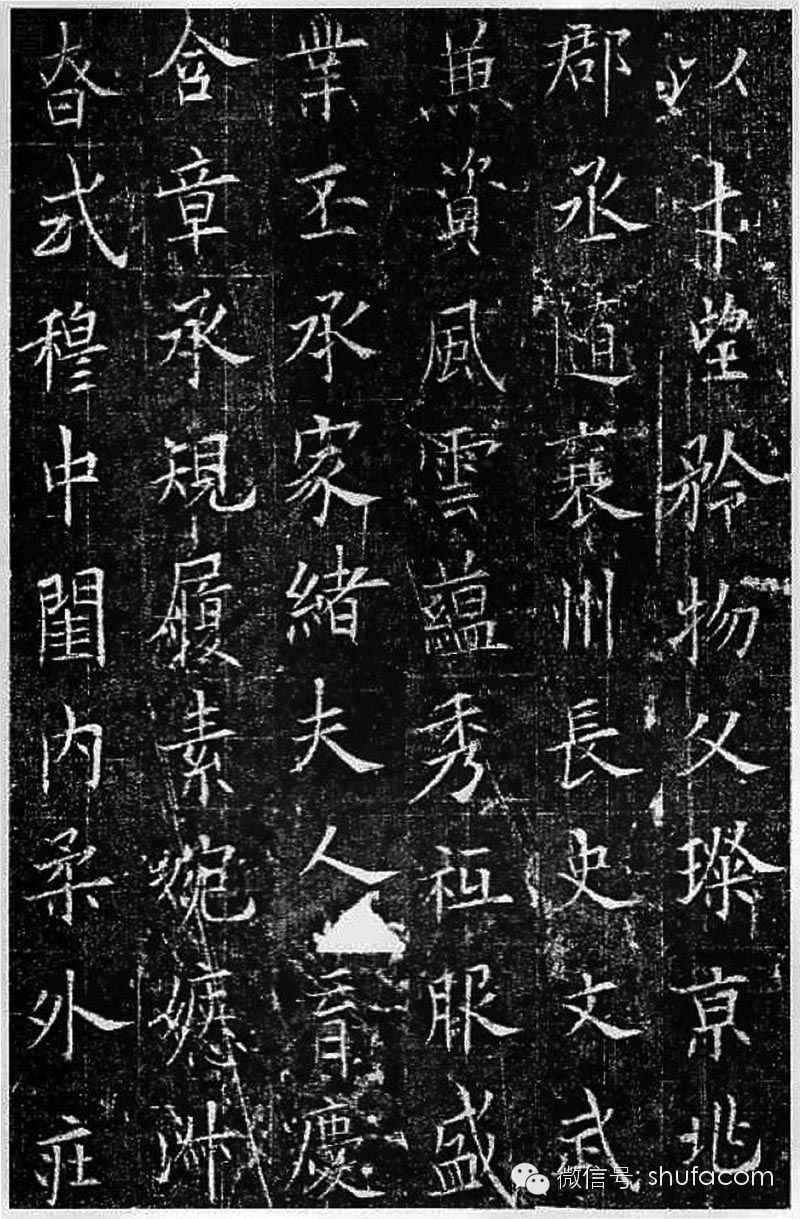 以才望矜物父璨亰兆
郡丞隨襄州長史文武
兼資風雲蘊秀祗服盛
業丕承家緒夫人慶
含章承規履素婉嫕淑
昚式穆中閨内柔外庄
微信号: shufacom